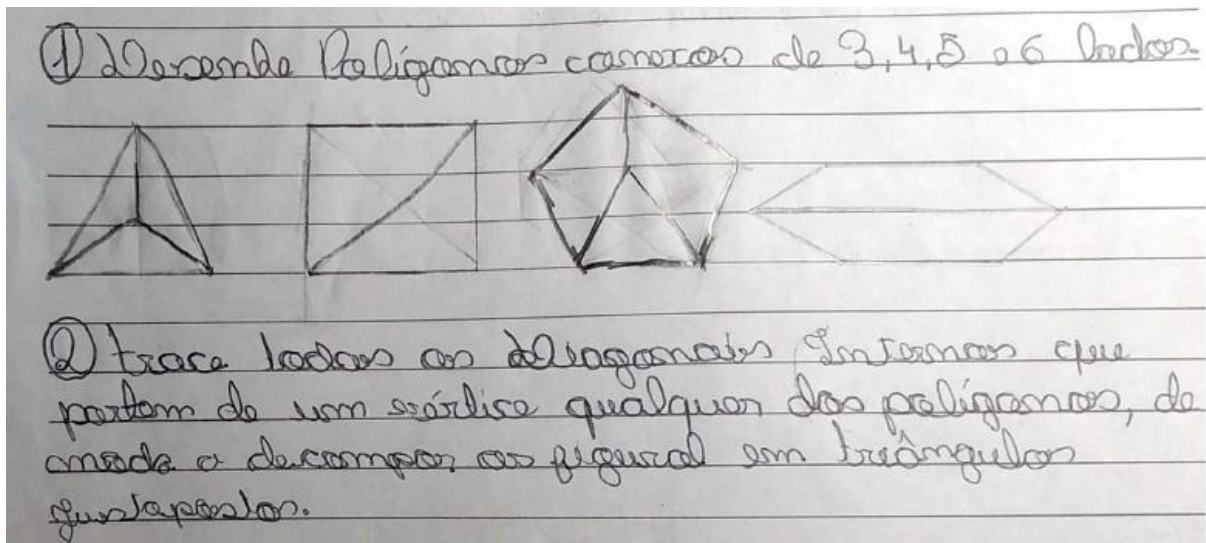 ① Desenhe Polígonos convexos de 3, 4, 5 e 6 lados.
② trace todas as Diagonais Internas que
partem de um vértice qualquer dos polígonos, de
modo a decompor as figural em triângulos
justapostos.